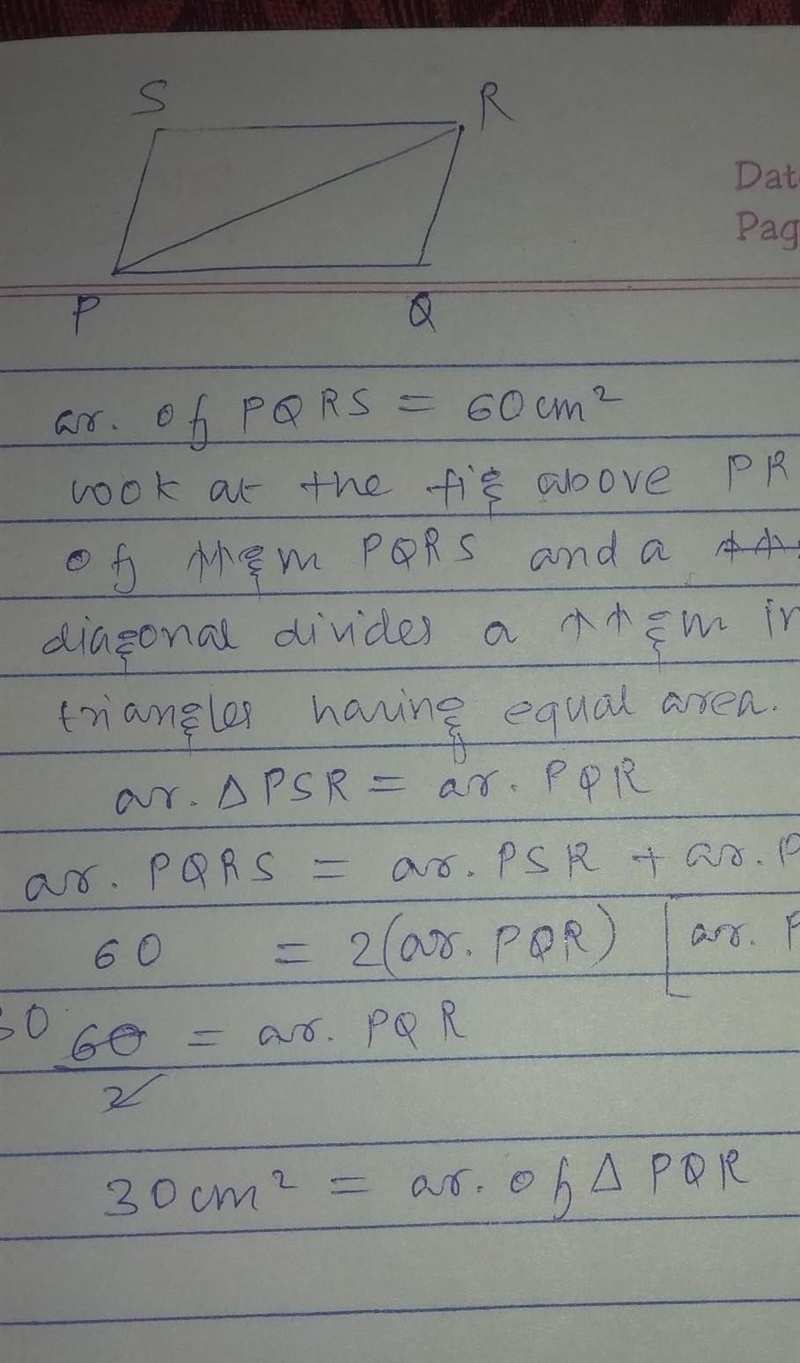 S R
Dat
Pag
P Q
ar. of PQRS = 60cm²
look at the fig above PR
of ↑↑gm PQRS and a
diagonal divides a ↑↑gm in
triangles having equal area.
ar. Δ PSR = ar. PQR
ar. PQRS = ar. PSR + ar. P
60 = 2(ar. PQR) [ar. P
30 60 = ar. PQR
2
30cm² = ar. of Δ PQR